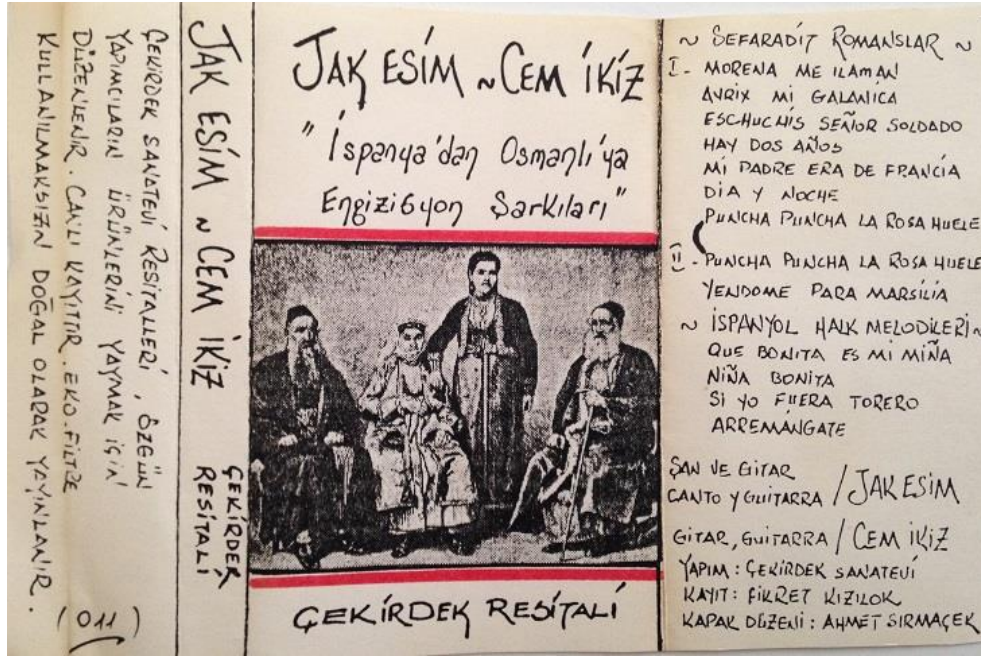 ÇEKİRDEK SANATEVİ RESİTALLERİ, ÖZGÜN
YAPIMCILARIN ÜRÜNLERİNİ YAYMAK İÇİN
DÜZENLENİR. CANLI KAYITTIR. EKO. FİLTRE
KULLANILMAKSIZIN DOĞAL OLARAK YAYINLANIR.
(011)
JAK ESİM ~ CEM İKİZ
ÇEKİRDEK
RESİTALİ
JAK ESİM ~ CEM İKİZ
"İspanya'dan Osmanlı'ya
Engizisyon Şarkıları"
ÇEKİRDEK RESİTALİ
~ SEFARADİT ROMANSLAR ~
I - MORENA ME ILAMAN
AVRIX MI GALANICA
ESCHUCHIS SEÑOR SOLDADO
HAY DOS AÑOS
Mİ PADRE ERA DE FRANCİA
DİA Y NOCHE
PUNCHA PUNCHA LA ROSA HUELE
II - PUNCHA PUNCHA LA ROSA HUELE
YENDOME PARA MARSİLİA
~ İSPANYOL HALK MELODİLERİ ~
QUE BONITA ES Mİ MİÑA
NİÑA BONITA
Sİ YO FUERA TORERO
ARREMANGATE
ŞAN VE GİTAR
CANTO Y GUITARRA / JAK ESİM
GİTAR, GUITARRA / CEM İKİZ
YAPIM : ÇEKİRDEK SANATEVİ
KAYIT : FİKRET KIZILOK
KAPAK DÜZENİ : AHMET SIRMAÇEK